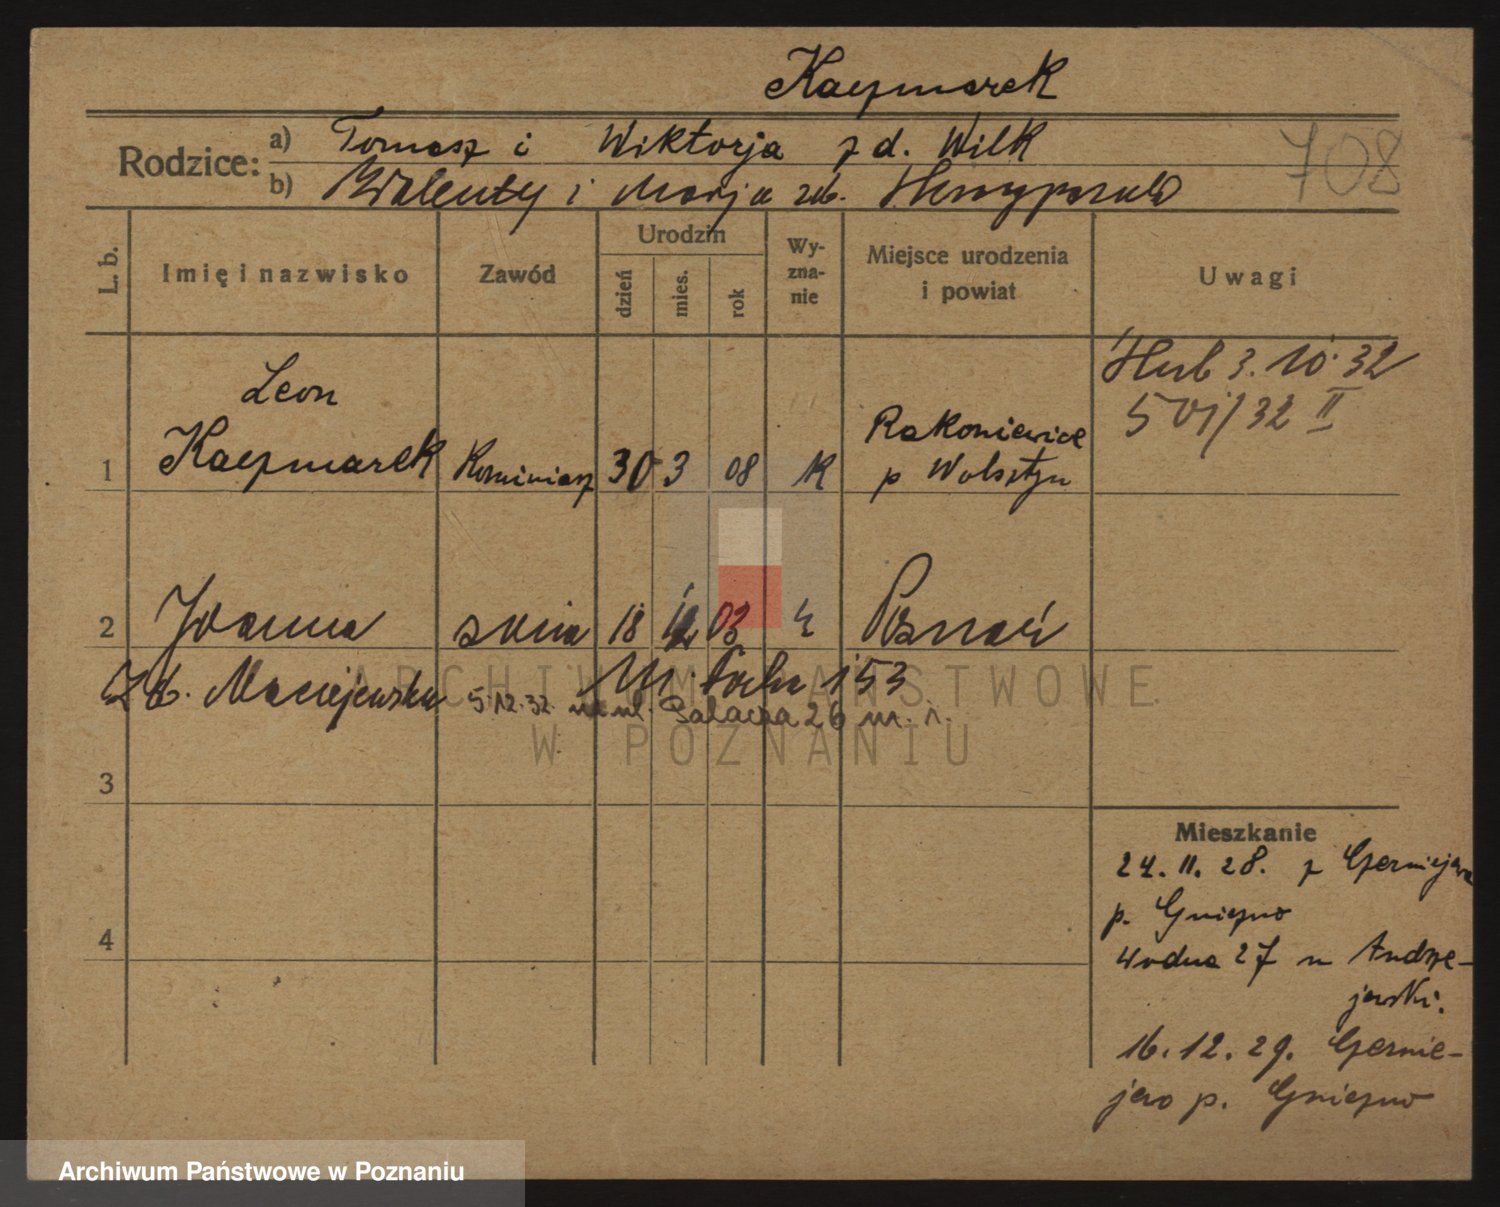 Kaczmarek
Rodzice: a) Tomasz i Wiktorja z d. Wilk
b) Walenty i Marja zd.
708
L. b.
Imię i nazwisko
Zawód
Urodzin
dzień
mies.
rok
Wy-
zna-
nie
Miejsce urodzenia
i powiat
Uwagi
1
Leon
Kaczmarek
Kominiarz
30
3
08
K
Rakoniewice
p Wolsztyn
3.10.32
32 II
2
Joanna
żona
18
12
03
Poznań
zd. Maciejewska
M. Focha 153
5.12.32 na ul. Palacza 26 m. 1.
3
4
Mieszkanie
24. 11. 28. z Czerniejewa
p. Gniezno
Wodna 27 u Andrze-
jewski.
16.12.29. Czernie-
jewo p. Gniezno
ARCHIWUM PAŃSTWOWE
W POZNANIU
Archiwum Państwowe w Poznaniu